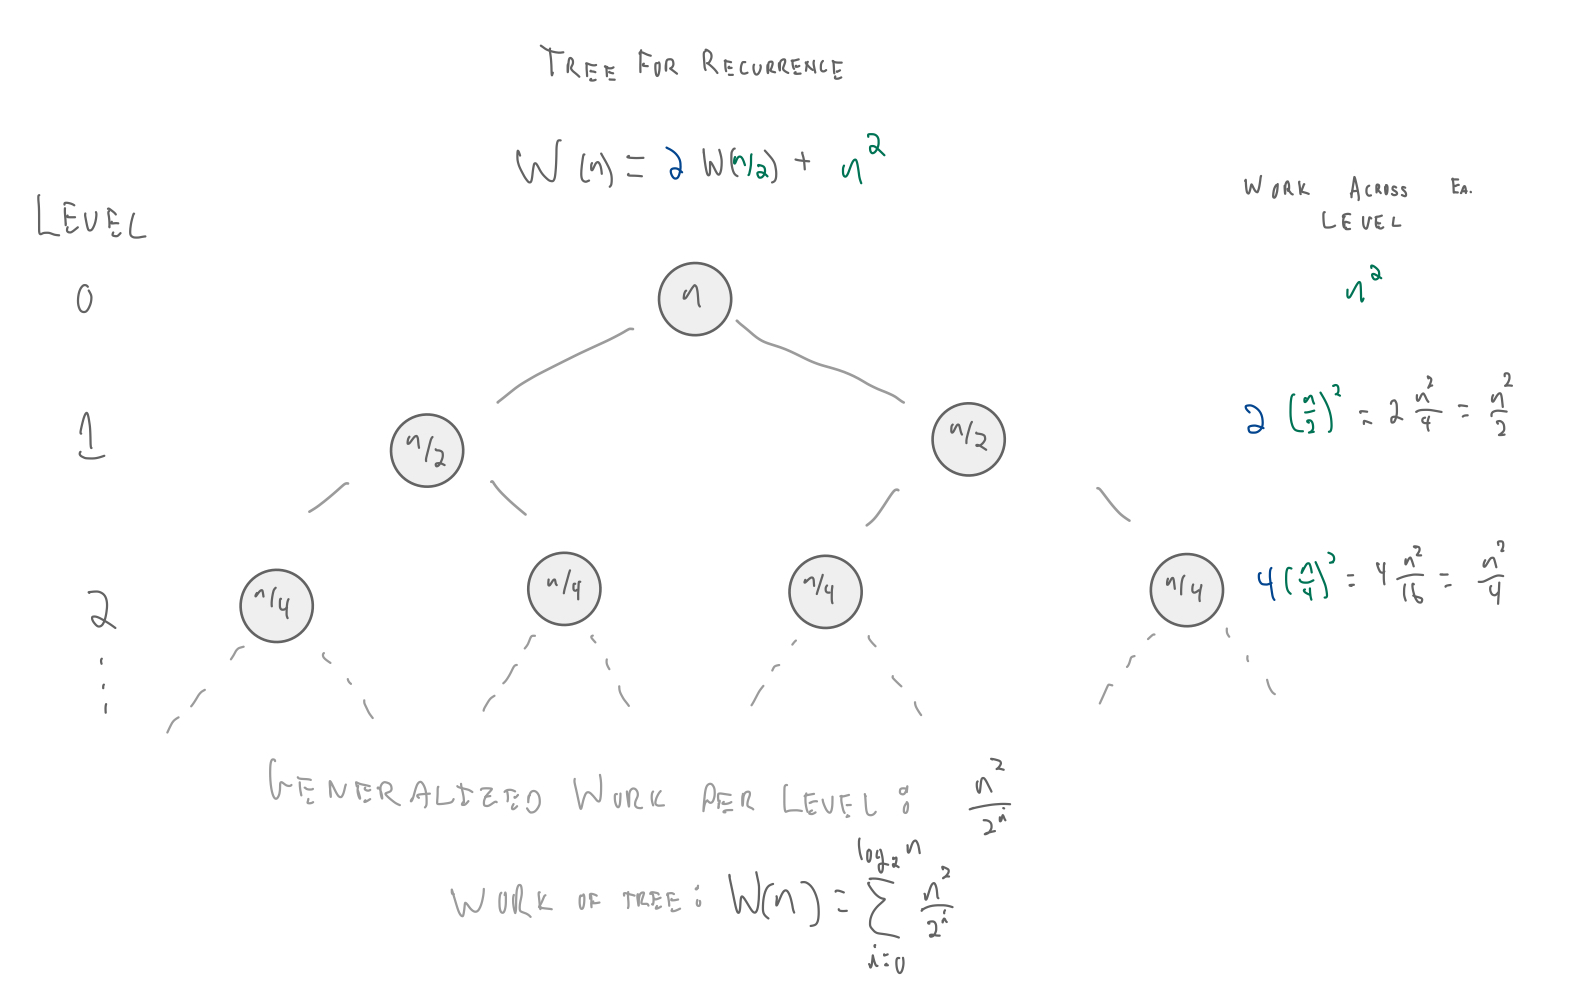 TREE FOR RECURRENCE
W(n) = 2 W(n/2) + n²
LEVEL
WORK ACROSS EA.
LEVEL
0
n
n²
1
n/2
n/2
2 (n/2)² = 2 n²/4 = n²/2
2
n/4
n/4
n/4
n/4
4 (n/4)² = 4 n²/16 = n²/4
GENERALIZED WORK PER LEVEL: n²/2ⁱ
WORK OF TREE: W(n) = ∑_{i=0}^{log₂ n} n²/2ⁱ